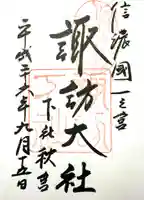 信濃國一之宮
諏訪大社
下社秋宮
平成二十六年九月十五日